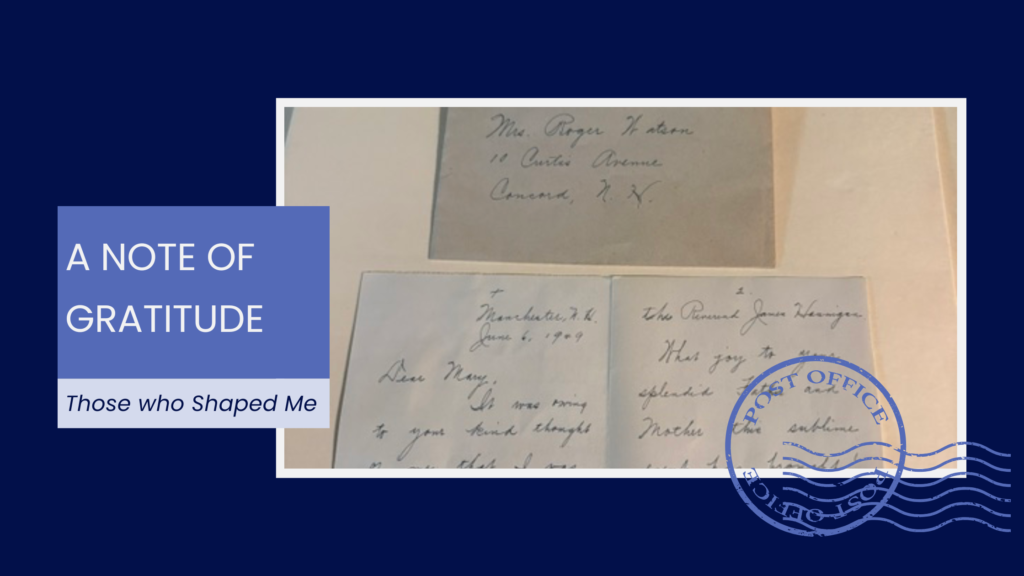 A NOTE OF
GRATITUDE
Those who Shaped Me
Mrs. Roger Watson
10 Curtis Avenue
Concord, N. H.
Manchester, N.H.
June 6, 1949
Dear Mary,
It was owing
to your kind thought
that I was
2.
Reverend James Hannigan
What joy to your
splendid Father and
Mother this sublime
brought
POST OFFICE
POST OFFICE